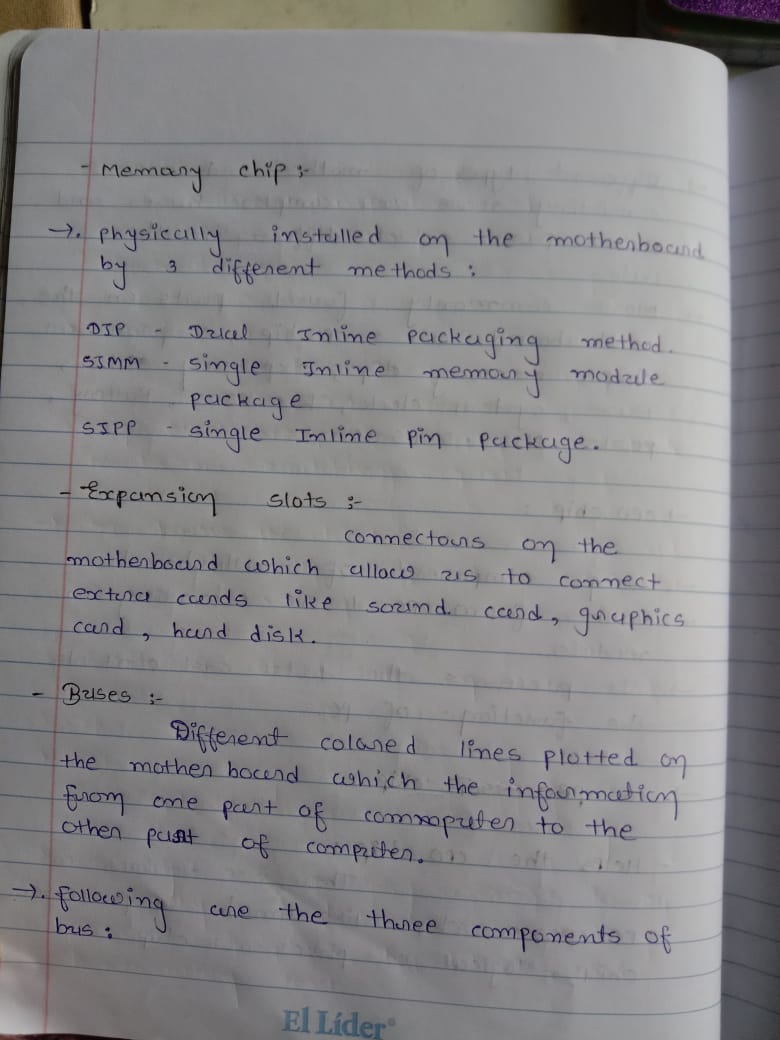 - Memory chip :-
→. physically installed on the motherboard
by 3 different methods :
DIP - Dual Inline packaging method.
SIMM - single Inline memory module
package
SIPP - single Inline pin package.
- Expansion slots :-
connectors on the
motherboard which allow us to connect
extra cards like sound card, graphics
card, hard disk.
- Buses :-
Different colored lines plotted on
the mother board which the information
from one part of computer to the
other part of computer.
→. following are the three components of
bus :
El Líder®